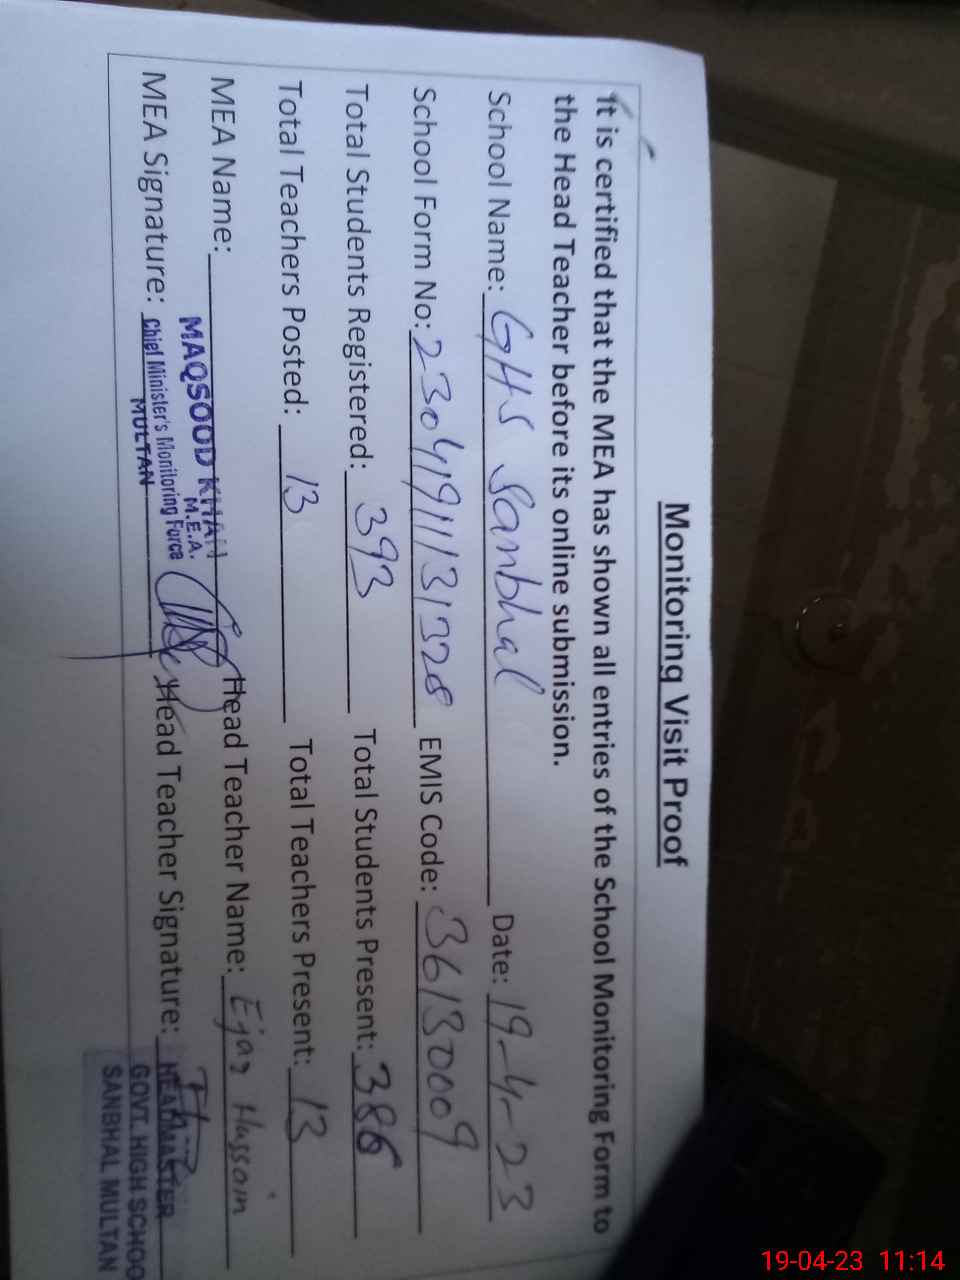 Monitoring Visit Proof
It is certified that the MEA has shown all entries of the School Monitoring Form to
the Head Teacher before its online submission.
School Name: GHS Sanbhal Date: 19-4-23
School Form No: EMIS Code: 36130009
Total Students Registered: 393 Total Students Present: 386
Total Teachers Posted: 13 Total Teachers Present: 13
MEA Name: MAQSOOD KHAN Head Teacher Name: Ejaz Hussain
M.E.A.
MEA Signature: Chief Minister's Monitoring Force Head Teacher Signature: HEADMASTER
MULTAN GOVT. HIGH SCHOO
SANBHAL MULTAN
19-04-23 11:14